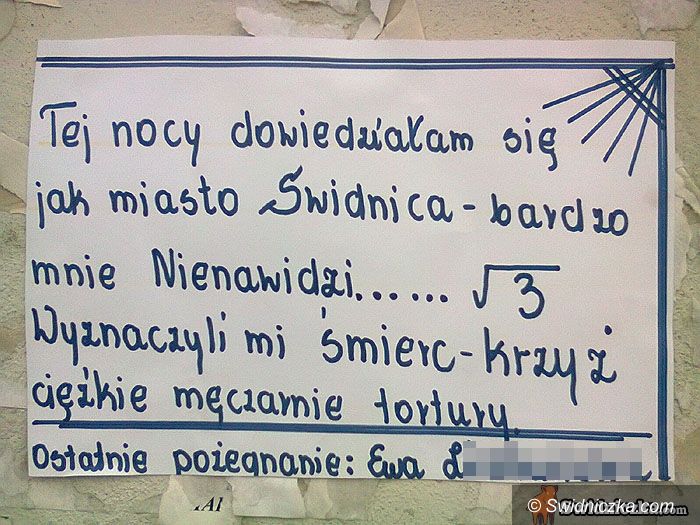 Tej nocy dowiedziałam się
jak miasto Świdnica - bardzo
mnie Nienawidzi...... √3
Wyznaczyli mi śmierc - krzyż
ciężkie męczarnie tortury.
Ostatnie pożegnanie: Ewa L
© Swidniczka.com